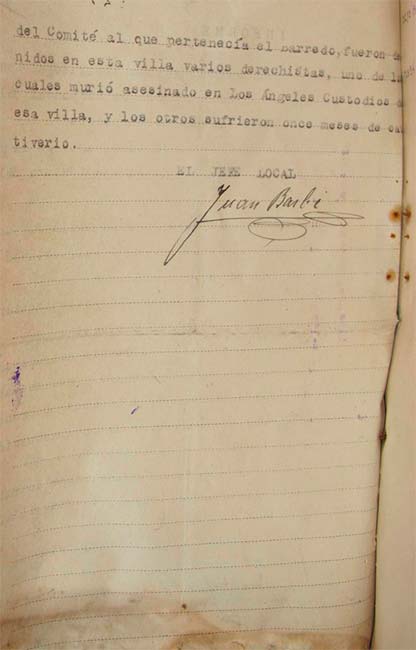 del Comité al que pertenecía el Barredo, fueron de
nidos en esta villa varios derechistas, uno de
cuales murió asesinado en Los Ángeles Custodios
esa villa, y los otros sufrieron once meses de cau
tiverio.
EL JEFE LOCAL
Juan